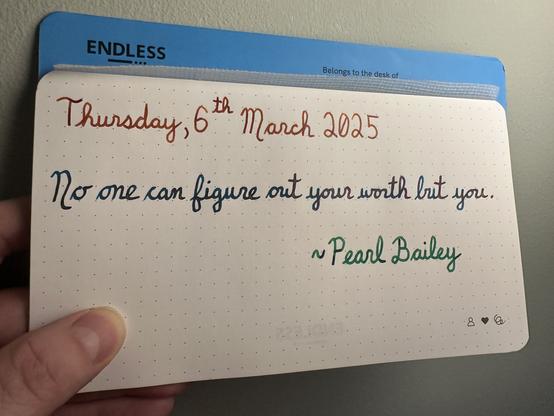 ENDLESS
Belongs to the desk of
Thursday, 6th March 2025
No one can figure out your worth but you.
~Pearl Bailey
ENDLESS